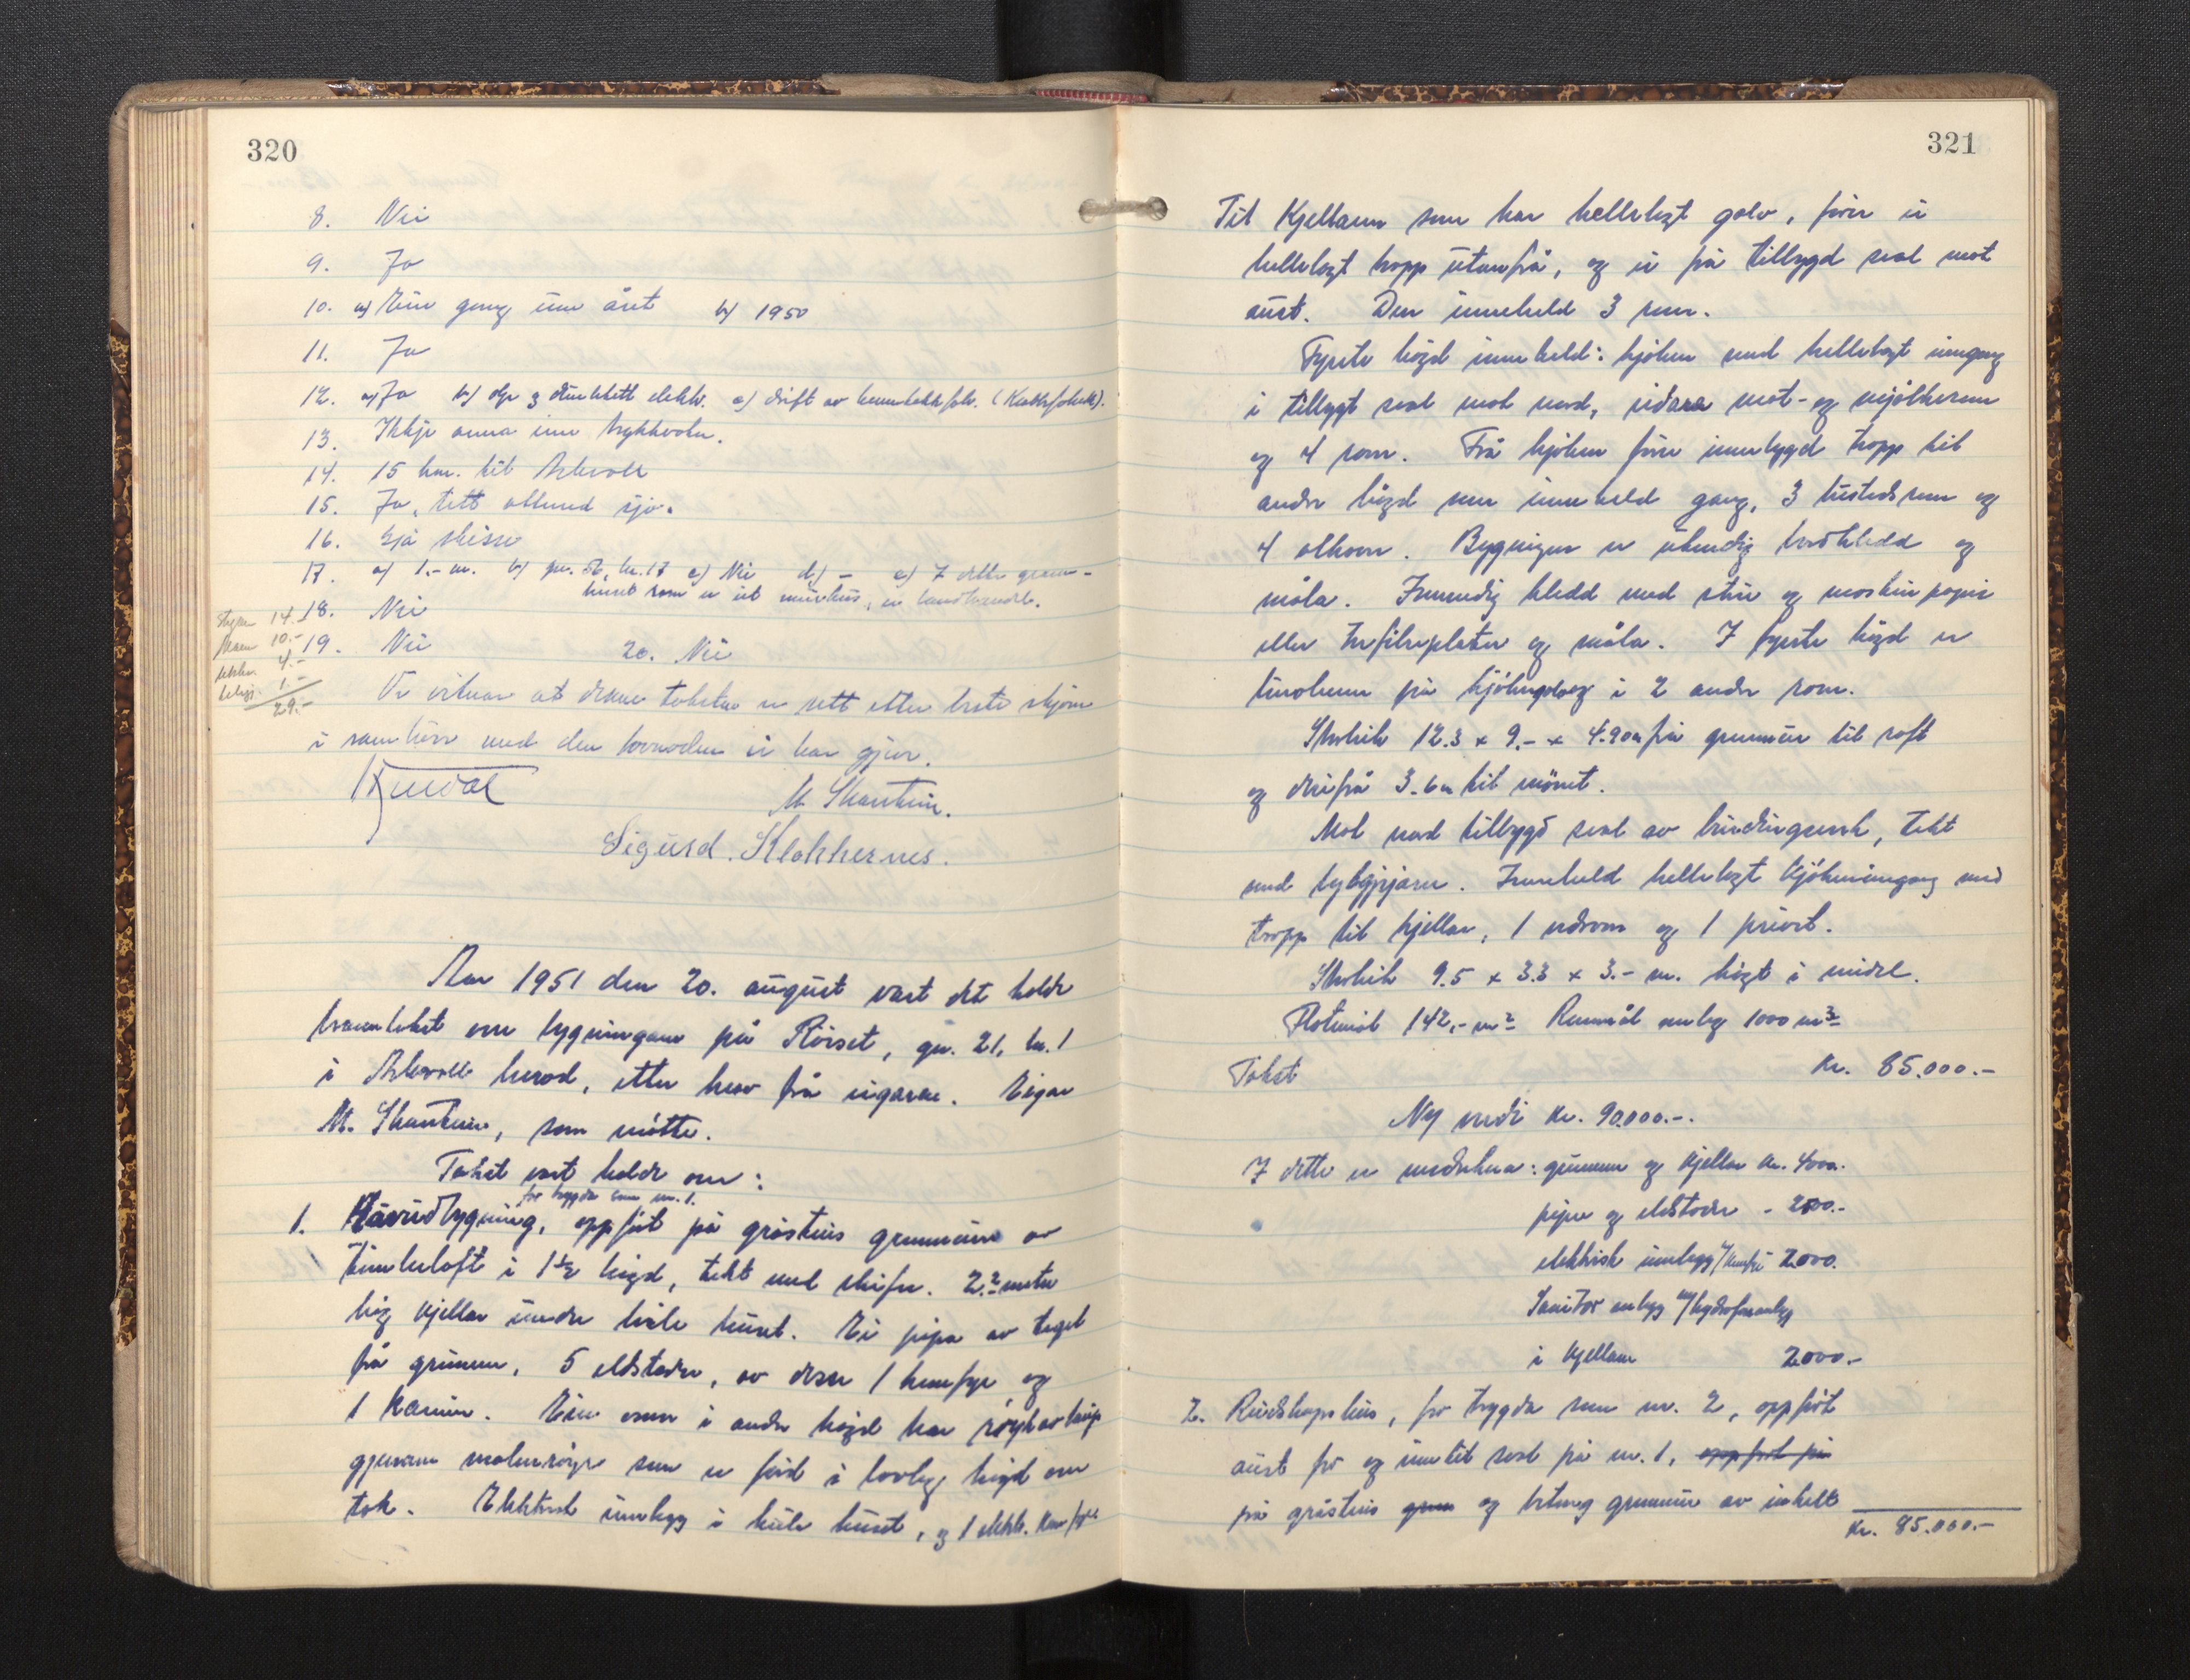 320
8. Nei
9. Ja
10. a) Ein gang um året b) 1950
11. Ja
12. a) Ja b) og 3 elektr. c) drift av
13. Ikkje anna enn trykkvatn.
14. 15 km. til Askvoll
15. Ja, tett attmed sjø.
16. Sjå skisse
17. a) 1.- m. b) gn. br. 17 c) Nei d) - e) I dette
huset som er eit er landhandel.
18. Nei
19. Nei 20. Nei
14.-
10.-
4.-
1.-
29.-
Vi vitnar at denne taksten er sett etter beste skjøn
i samhøve med den vi har gjeve.
M. Skarstein.
Sigurd Klokkernes.
Aar 1951 den 20. august vart det halde
branntakst om bygningane på Röiset, gn. 21, br. 1
i Askvoll herad, etter krav frå eigaren. Eigar
M. Skarstein, som møtte.
Takst vart halde om:
før trygda som nr. 1.
1. Hovudbygning, oppført på gråsteins grunnmur av
timbrloft i 1½ högd, tekt med skifer. 2.2 meter
høg kjellar under heile huset. Ei pipa av tegl
frå grunnen, 5 eldstader, av desse 1 komfyr og
1 kamin. Ein omn i andre høgd har røykavlaup
gjennom som er ført i lovleg høgd over
tak. Elektrisk innlegg i heile huset, og 1 elektr. komfyr
321
Til kjellaren som har hellelagt golv, fører ei
hellelagt tropp utanfrå, og ei frå tilbygd sval mot
aust. Den inneheld 3 rom.
Fyrste högd inneheld: kjøken med hellelagt inngang
i tilbygt sval mot nord, mat- og mjølkerom
og 4 rom. Frå kjøken fører innebygd tropp til
andre høgd som inneheld gang, 3 rom og
4 alkover. Bygningen er utvendig bordkledd og
måla. Innvendig kledd med strie og maskinpapir
eller trefiberplater og måla. I fyrste høgd er
linoleum på kjøkengolv og i 2 andre rom.
Storleik 12.3 x 9.- x 4.90 m frå grunnmur til raft
og derifrå 3.6 m til mønet.
Mot nord tilbygd sval av bindingsverk, tekt
med bylgjejarn. Inneheld hellelagt kjøkeninngang med
tropp til kjellar, 1 vedrom og 1 privet.
Storleik 9.5 x 3.3 x 3.- m. høgt i midel.
Flatemål 142,- m² Rommål omlag 1000 m³
Takst Kr. 85.000.-
Ny verdi kr. 90.000.-.
I dette er medrekna: grunnmur og kjellar kr. 4000.
pipe og eldstader - 2500.-
elektrisk innlegg m/ komfyr 2000.
Sanitær anlegg m/ hydroforanlegg
i kjellaren 2000.-
2. Reidskapshus, før trygda som nr. 2, oppført
aust for og inntil sval på nr. 1, oppført på
på gråsteins grun og betong grunnmur av enkelt
Kr. 85.000.-